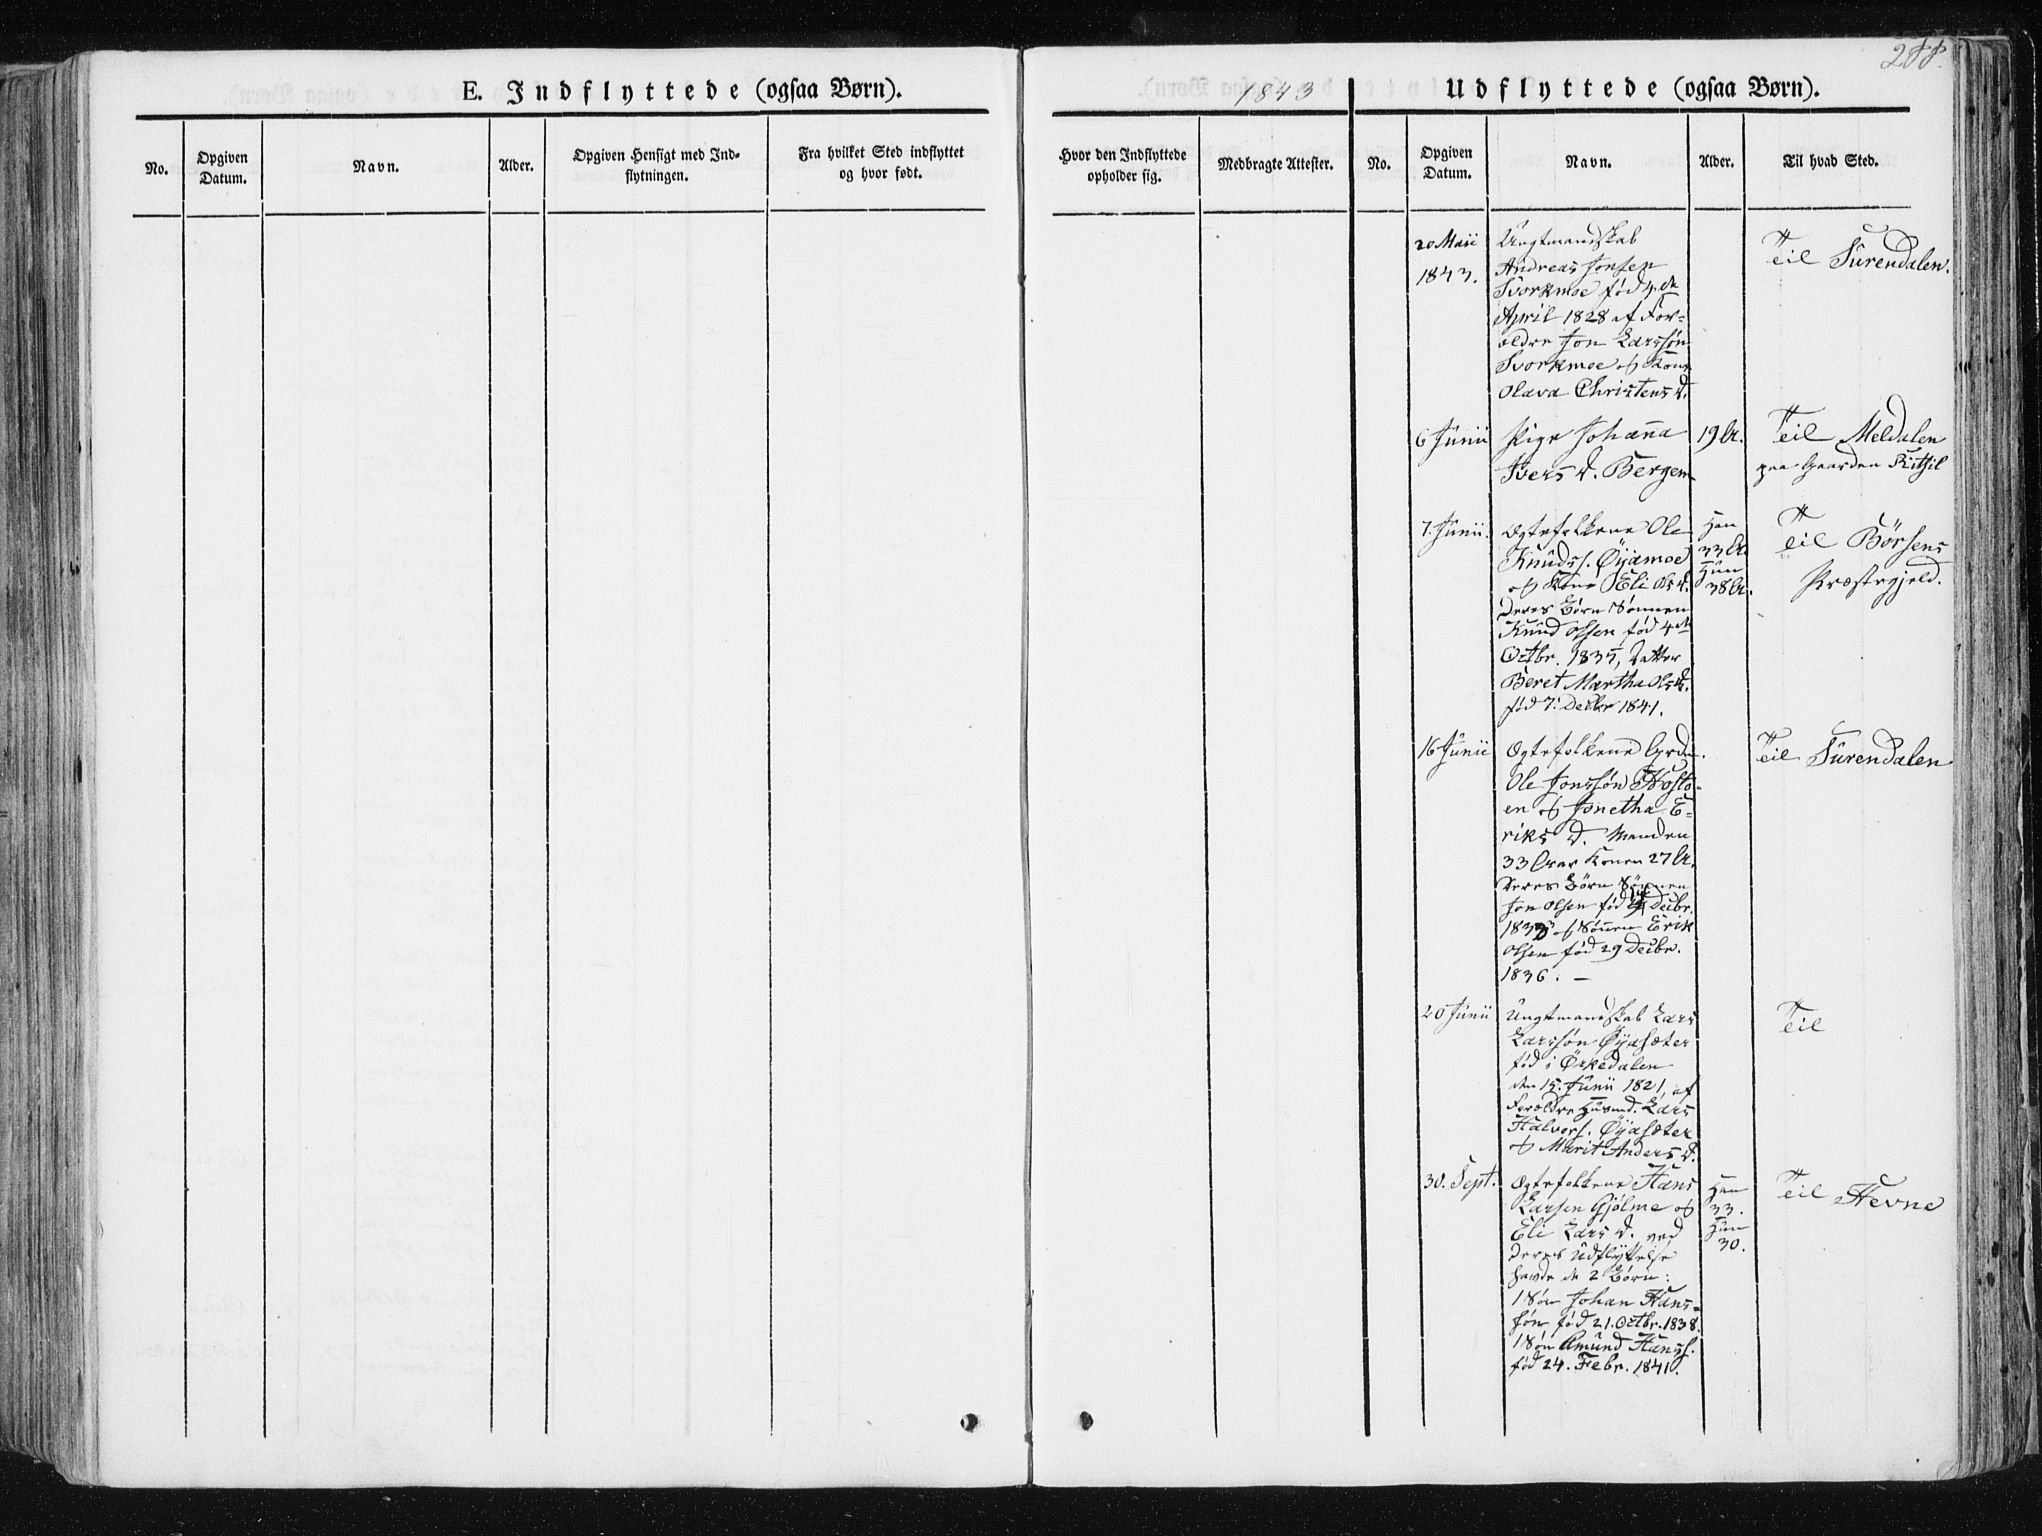 288.
E. Indflyttede (ogsaa Børn).
1843
Udflyttede (ogsaa Børn).
No.
Opgiven
Datum.
Navn.
Alder.
Opgiven Hensigt med Ind-
flytningen.
Fra hvilket Sted indflyttet
og hvor født.
Hvor den Indflyttede
opholder sig.
Medbragte Attester.
No.
Opgiven
Datum.
Navn.
Alder.
Til hvad Sted.
20 Maii
1843.
Ungtmandskab
Andreas Jonsen
Svorkmoe fød 4de
April 1828 af For-
ældre Jon Larssøn
Svorkmoe og Kone
Olava Christens D.
Teil Surendalen.
6 Junii
Pige Johanna
Ivers D. Bergem
19 Ar.
Teil Meldalen
paa Gaarden
7. Junii.
Ægtefolkene Ole
Knuds. Øyamoe
og Kone Eli Ols D.
deres Børn Sønnen
Knud Olsen fød 4de
Octbr. 1835, Datter
Beret Martha Ols D.
fød 7. Decbr 1841.
Han
33 Ar.
Hun
38 Ar.
Teil Børsens
Præstegjeld.
16 Junii
Ægtefolkene
Ole Jonssøn Hosto-
en og Jonetha E-
riks D. Manden
33 Aar Konen 27 Ar.
deres Børn Sønnen
Jon Olsen fød Decbr.
og Sønnen Erik
Olsen fød 29 Decbr.
1836. —
Teil Surendalen
20 Junii
Ungtmandskab Lars
Larssøn Øyasæter
fød i Ørkedalen
den 15. Junii 1821, af
Forældre Huusmd. Lars
Halvors. Øyasæter
og Marit Anders D.
Teil
30. Sept.
Ægtefolkene Hans
Larsen Gjølme og
Eli Lars D. ved
deres Udflyttelse
havde de 2 Børn:
1 Søn Johan Hans-
søn fød 21. Octbr. 1838.
1 Søn Amund Hanss.
fød 24. Febr. 1841.
Han
33.
Hun
30.
Teil Hevne